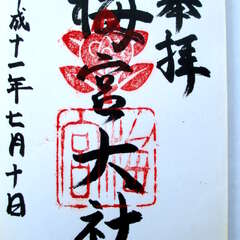 奉拝
梅宮大社
平成十一年七月十日